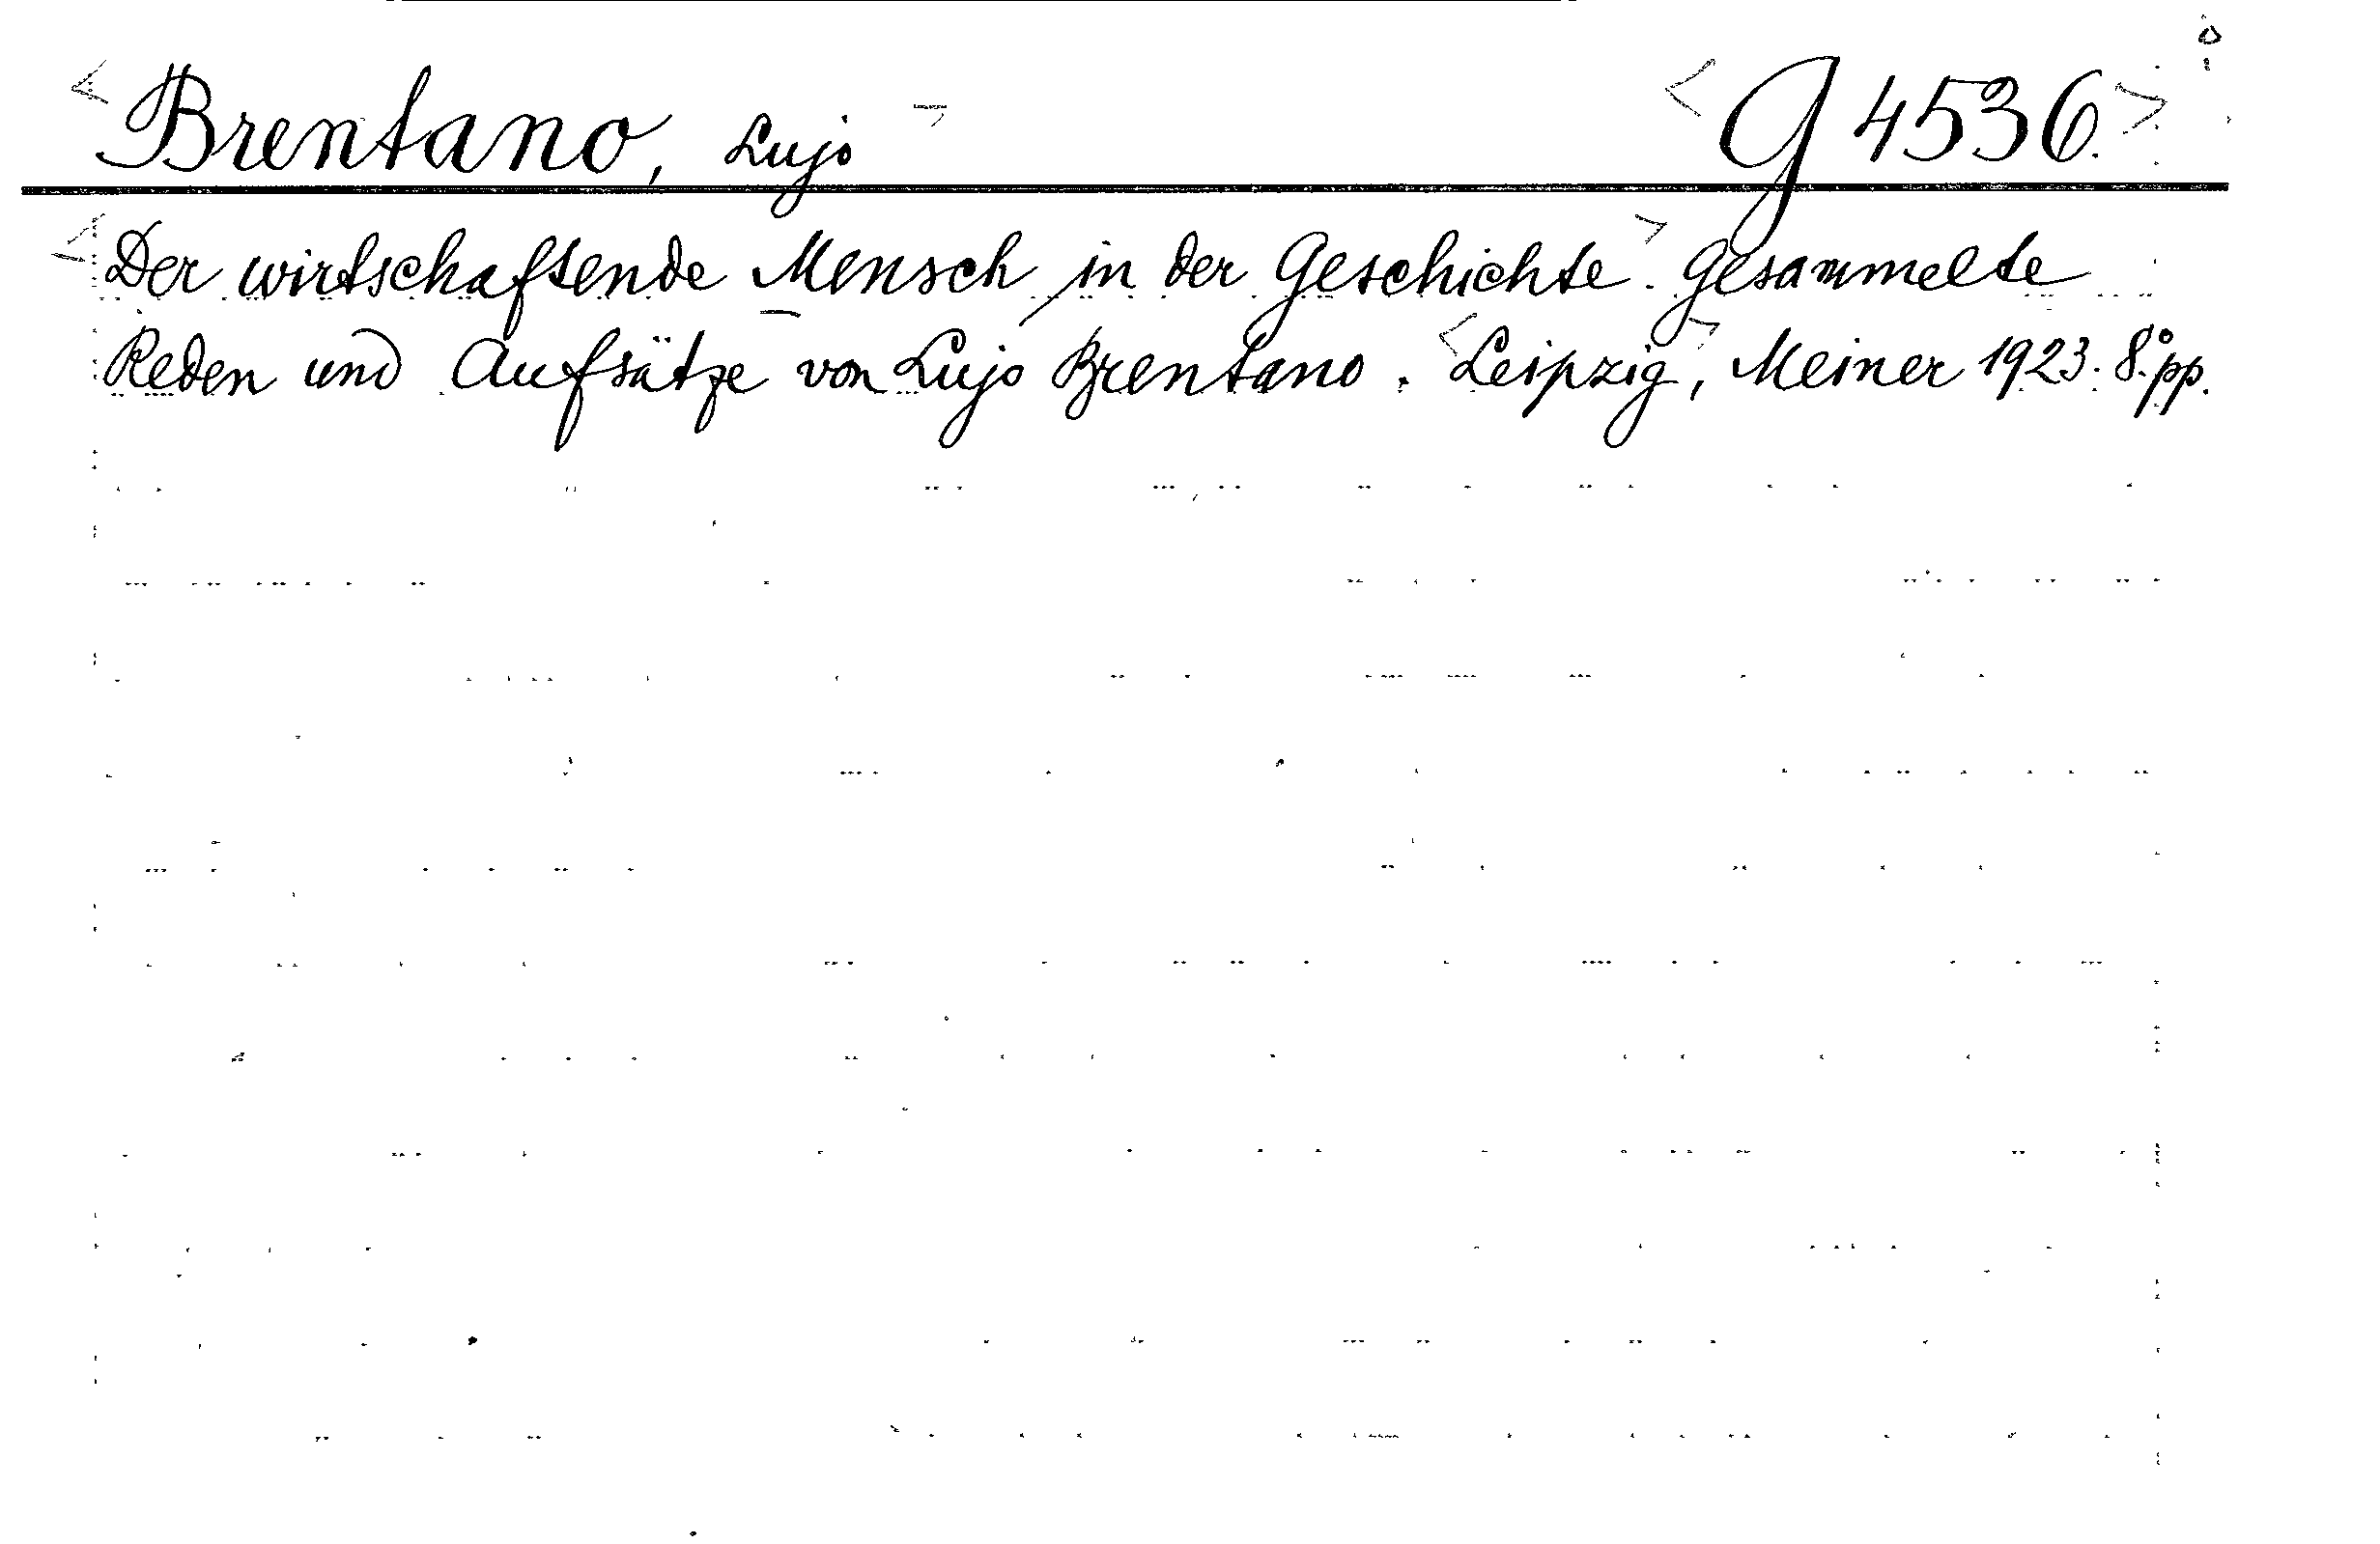 Brentano, Lujo G 4536.
Der wirtschaftende Mensch in der Geschichte. Gesammelte
Reden und Aufsätze von Lujo Brentano. Leipzig, Meiner 1923. 8°. pp.